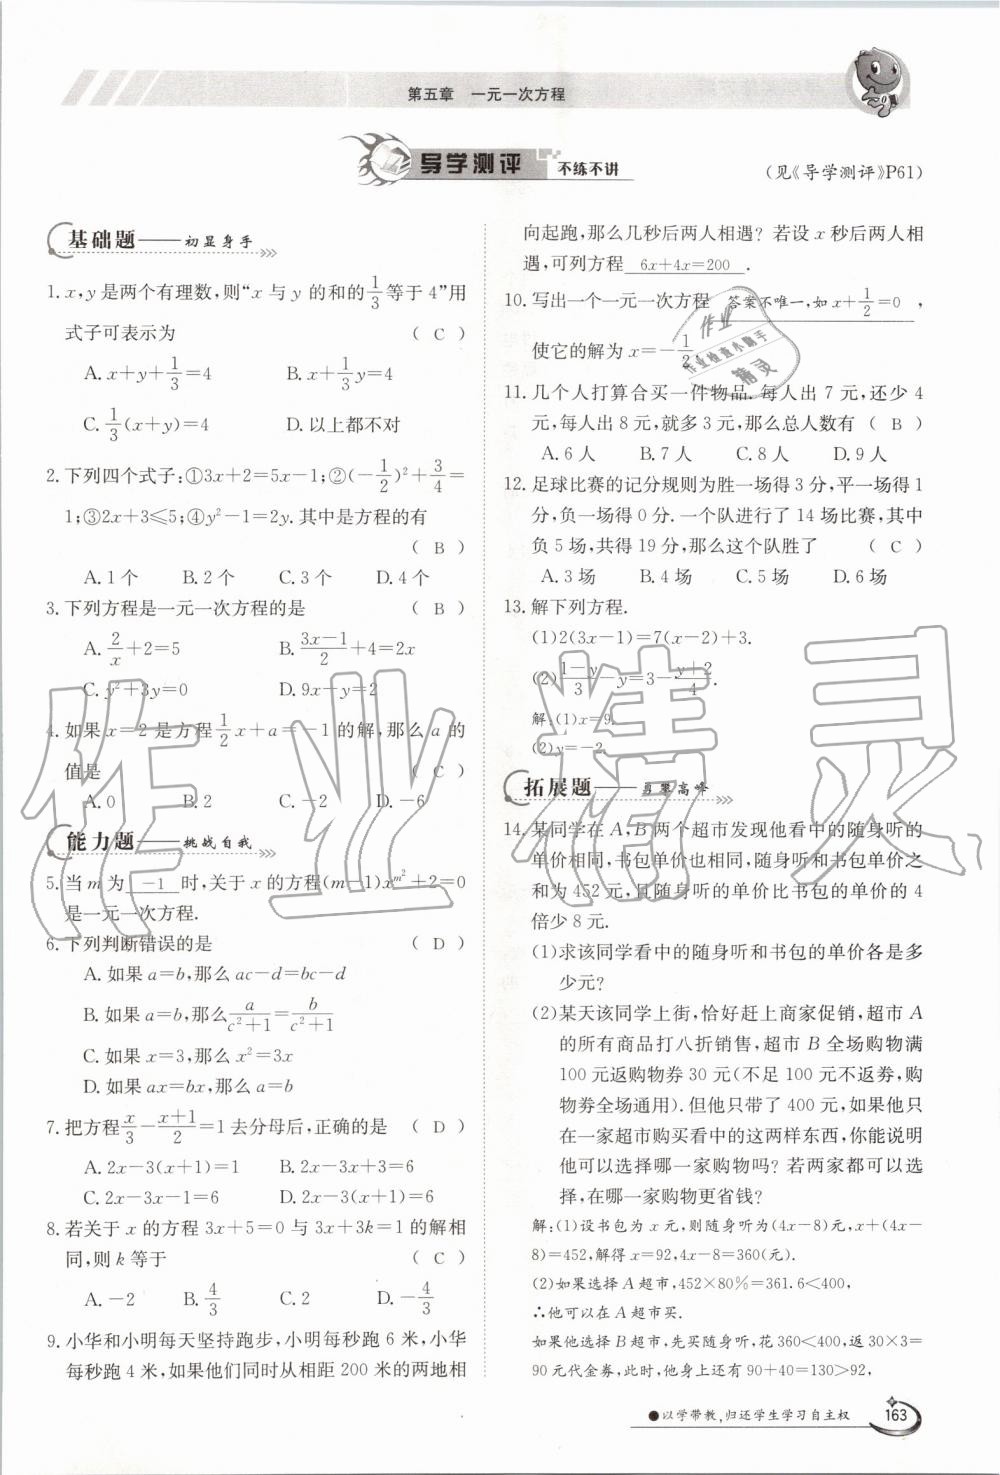 第五章　一元一次方程
导学测评 不练不讲
(见《导学测评》P61)
基础题——初显身手
1. x,y是两个有理数,则“x与y的和的1/3等于4”用
式子可表示为 ( C )
A. x+y+1/3=4　B. x+1/3y=4
C. 1/3(x+y)=4　D. 以上都不对
2. 下列四个式子:①3x+2=5x-1;②(-1/2)²+3/4=
1;③2x+3≤5;④y²-1=2y. 其中是方程的有
( B )
A. 1个　B. 2个　C. 3个　D. 4个
3. 下列方程是一元一次方程的是 ( B )
A. 2/x+2=5　B. (3x-1)/2+4=2x
C. y²+3y=0　D. 9x-y=2
4. 如果x=2是方程1/2x+a=-1的解,那么a的
值是 ( C )
A. 0　B. 2　C. -2　D. -6
能力题——挑战自我
5. 当m为 -1 时,关于x的方程(m-1)x^m²+2=0
是一元一次方程.
6. 下列判断错误的是 ( D )
A. 如果a=b,那么ac-d=bc-d
B. 如果a=b,那么a/(c²+1)=b/(c²+1)
C. 如果x=3,那么x²=3x
D. 如果ax=bx,那么a=b
7. 把方程x/3-(x+1)/2=1去分母后,正确的是 ( D )
A. 2x-3(x+1)=1　B. 2x-3x+3=6
C. 2x-3x-1=6　D. 2x-3(x+1)=6
8. 若关于x的方程3x+5=0与3x+3k=1的解相
同,则k等于 ( C )
A. -2　B. 4/3　C. 2　D. -4/3
9. 小华和小明每天坚持跑步,小明每秒跑6米,小华
每秒跑4米,如果他们同时从相距200米的两地相
向起跑,那么几秒后两人相遇? 若设x秒后两人相
遇,可列方程 6x+4x=200 .
10. 写出一个一元一次方程 答案不唯一,如x+1/2=0 ,
使它的解为x=-1/2.
11. 几个人打算合买一件物品. 每人出7元,还少4
元,每人出8元,就多3元,那么总人数有 ( B )
A. 6人　B. 7人　C. 8人　D. 9人
12. 足球比赛的记分规则为胜一场得3分,平一场得1
分,负一场得0分. 一个队进行了14场比赛,其中
负5场,共得19分,那么这个队胜了 ( C )
A. 3场　B. 4场　C. 5场　D. 6场
13. 解下列方程.
(1)2(3x-1)=7(x-2)+3.
(2)(1-y)/3-y=3-(y+2)/4.
解:(1)x=9.
(2)y=-2.
拓展题——勇攀高峰
14. 某同学在A,B两个超市发现他看中的随身听的
单价相同,书包单价也相同,随身听和书包单价之和
为452元,且随身听的单价比书包的单价的4
倍少8元.
(1)求该同学看中的随身听和书包的单价各是多
少元?
(2)某天该同学上街,恰好赶上商家促销,超市A
的所有商品打八折销售,超市B全场购物满
100元返购物券30元(不足100元不返券,购
物券全场通用). 但他只带了400元,如果他只
在一家超市购买看中的这两样东西,你能说明
他可以选择哪一家购物吗? 若两家都可以选
择,在哪一家购物更省钱?
解:(1)设书包为x元,则随身听为(4x-8)元,x+(4x-
8)=452,解得x=92,4x-8=360(元).
(2)如果选择A超市,452×80%=361.6<400,
∴他可以在A超市买.
如果他选择B超市,先买随身听,花360<400,返30×3=
90元代金券,此时,他身上还有90+40=130>92,
●以学带教,归还学生学习自主权
163
作业
作业检查小助手
精灵
作业精灵